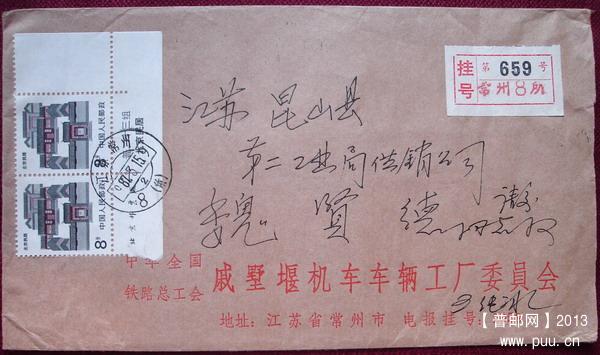 挂号 第 659 号
常州8所
江苏 昆山县
第二工业局供销公司
魏 贤 德 同志收
中国人民邮政
8分
北京民居
中国人民邮政
8分
北京民居
中华全国
铁路总工会
戚墅堰机车车辆工厂委员会
地址：江苏省常州市 电报挂号：
【普邮网】2013
www.puu.cn